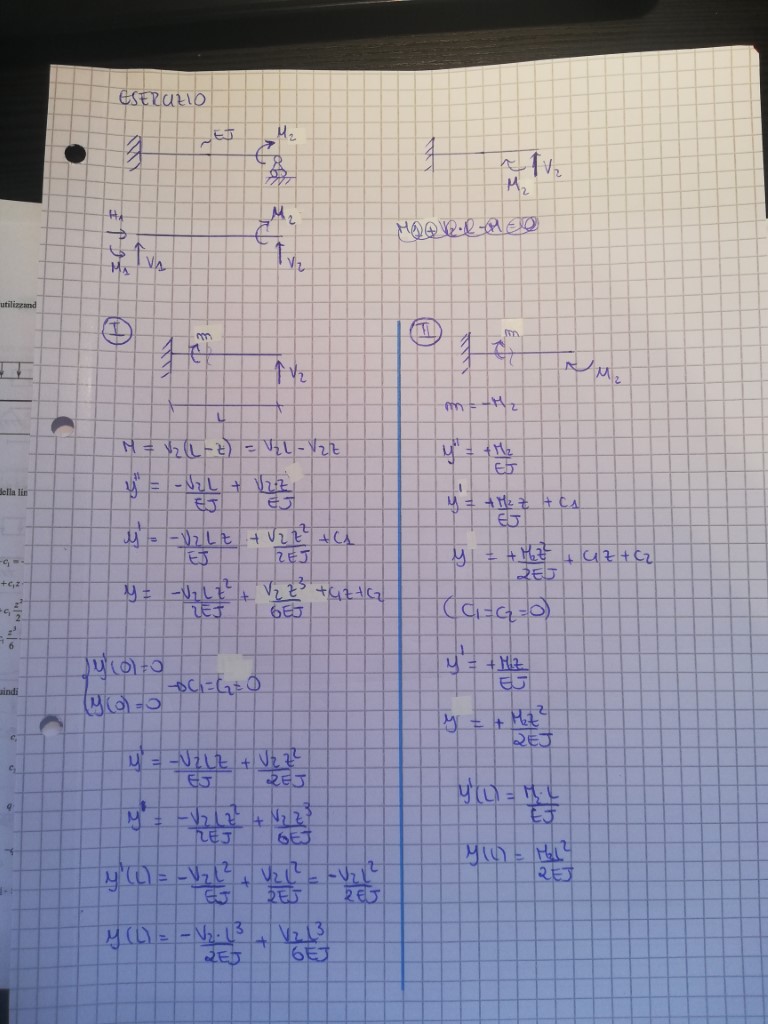 ESERCIZIO
EJ
M₂
M₂
V₂
H₁
M₁
V₁
M₂
V₂
I
m
V₂
L
M = V₂(L-z) = V₂L - V₂z
y'' = -V₂L/EJ + V₂z/EJ
y' = -V₂Lz/EJ + V₂z²/2EJ + C₁
y = -V₂Lz²/2EJ + V₂z³/6EJ + C₁z + C₂
y'(0)=0
y(0)=0
→ C₁=C₂=0
y' = -V₂Lz/EJ + V₂z²/2EJ
y = -V₂Lz²/2EJ + V₂z³/6EJ
y'(L) = -V₂L²/EJ + V₂L²/2EJ = -V₂L²/2EJ
y(L) = -V₂·L³/2EJ + V₂L³/6EJ
II
m
M₂
m = -M₂
y'' = +M₂/EJ
y' = +M₂z/EJ + C₁
y = +M₂z²/2EJ + C₁z + C₂
(C₁=C₂=0)
y' = +M₂z/EJ
y = +M₂z²/2EJ
y'(L) = M₂L/EJ
y(L) = M₂L²/2EJ
utilizzand